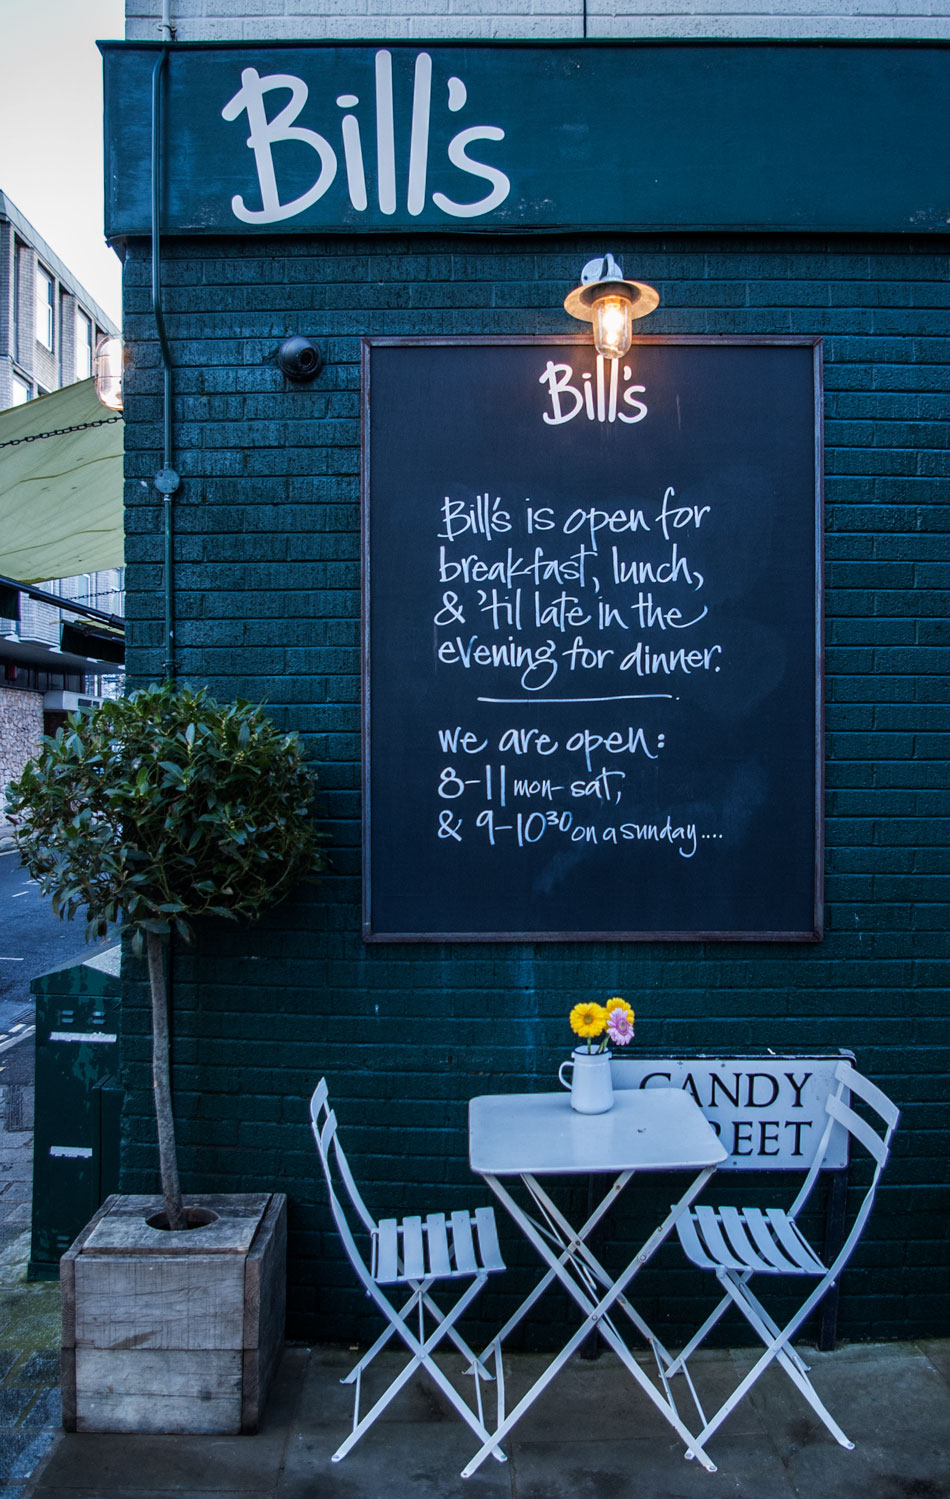 Bill's
Bill's
Bill's is open for
breakfast, lunch,
& 'til late in the
evening for dinner.
we are open:
8-11 mon- sat,
& 9-10³⁰ on a sunday....
CANDY